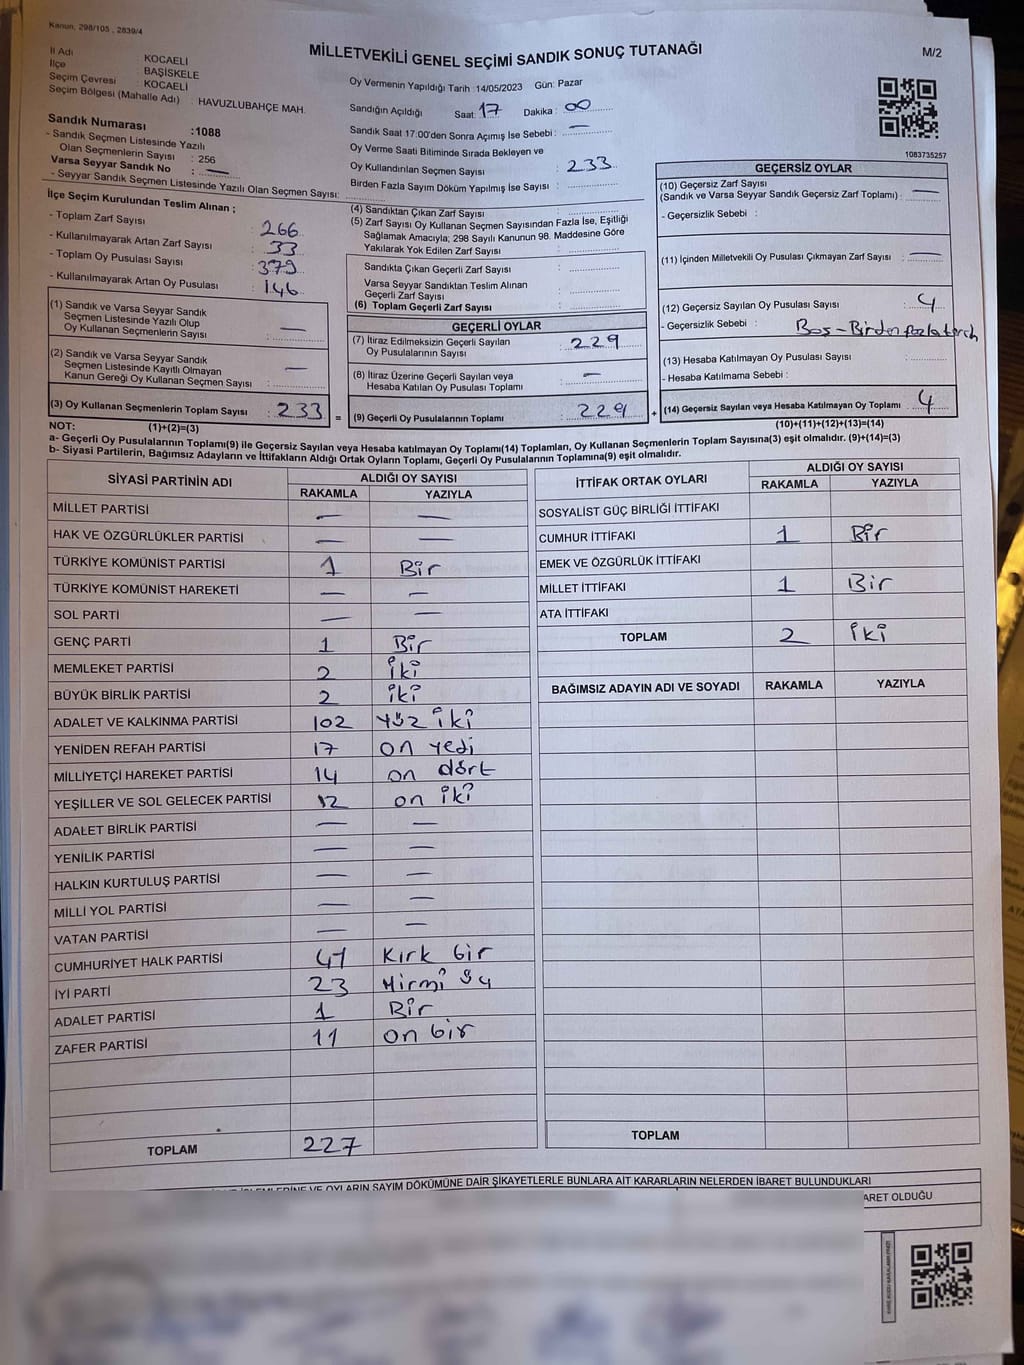 Kanun, 298/105 , 2839/4
MİLLETVEKİLİ GENEL SEÇİMİ SANDIK SONUÇ TUTANAĞI
M/2
İl Adı KOCAELİ
İlçe BAŞİSKELE
Seçim Çevresi KOCAELİ
Seçim Bölgesi (Mahalle Adı) : HAVUZLUBAHÇE MAH.
Oy Vermenin Yapıldığı Tarih :14/05/2023 Gün: Pazar
Sandığın Açıldığı Saat: 17 Dakika : 00
Sandık Numarası :1088
- Sandık Seçmen Listesinde Yazılı
Olan Seçmenlerin Sayısı : 256
Varsa Seyyar Sandık No : —
- Seyyar Sandık Seçmen Listesinde Yazılı Olan Seçmen Sayısı:
Sandık Saat 17:00'den Sonra Açımış İse Sebebi : —
Oy Verme Saati Bitiminde Sırada Bekleyen ve
Oy Kullandırılan Seçmen Sayısı : 233
Birden Fazla Sayım Döküm Yapılmış İse Sayısı :
1083735257
İlçe Seçim Kurulundan Teslim Alınan ;
- Toplam Zarf Sayısı : 266
- Kullanılmayarak Artan Zarf Sayısı : 33
- Toplam Oy Pusulası Sayısı : 379
- Kullanılmayarak Artan Oy Pusulası : 146
(1) Sandık ve Varsa Seyyar Sandık
Seçmen Listesinde Yazılı Olup
Oy Kullanan Seçmenlerin Sayısı : —
(2) Sandık ve Varsa Seyyar Sandık
Seçmen Listesinde Kayıtlı Olmayan
Kanun Gereği Oy Kullanan Seçmen Sayısı : —
(3) Oy Kullanan Seçmenlerin Toplam Sayısı : 233 =
(4) Sandıktan Çıkan Zarf Sayısı :
(5) Zarf Sayısı Oy Kullanan Seçmen Sayısından Fazla İse, Eşitliği
Sağlamak Amacıyla; 298 Sayılı Kanunun 98. Maddesine Göre
Yakılarak Yok Edilen Zarf Sayısı :
Sandıkta Çıkan Geçerli Zarf Sayısı :
Varsa Seyyar Sandıktan Teslim Alınan
Geçerli Zarf Sayısı :
(6) Toplam Geçerli Zarf Sayısı :
GEÇERLİ OYLAR
(7) İtiraz Edilmeksizin Geçerli Sayılan
Oy Pusulalarının Sayısı : 229
(8) İtiraz Üzerine Geçerli Sayılan veya
Hesaba Katılan Oy Pusulası Toplamı : —
(9) Geçerli Oy Pusulalarının Toplamı : 229 +
GEÇERSİZ OYLAR
(10) Geçersiz Zarf Sayısı
(Sandık ve Varsa Seyyar Sandık Geçersiz Zarf Toplamı) : —
- Geçersizlik Sebebi :
(11) İçinden Milletvekili Oy Pusulası Çıkmayan Zarf Sayısı : —
(12) Geçersiz Sayılan Oy Pusulası Sayısı : 4
- Geçersizlik Sebebi : Boş - Birden fazla tercih
(13) Hesaba Katılmayan Oy Pusulası Sayısı :
- Hesaba Katılmama Sebebi :
(14) Geçersiz Sayılan veya Hesaba Katılmayan Oy Toplamı : 4
(10)+(11)+(12)+(13)=(14)
NOT: (1)+(2)=(3)
a- Geçerli Oy Pusulalarının Toplamı(9) ile Geçersiz Sayılan veya Hesaba katılmayan Oy Toplamı(14) Toplamları, Oy Kullanan Seçmenlerin Toplam Sayısına(3) eşit olmalıdır. (9)+(14)=(3)
b- Siyasi Partilerin, Bağımsız Adayların ve İttifakların Aldığı Ortak Oyların Toplamı, Geçerli Oy Pusulalarının Toplamına(9) eşit olmalıdır.
SİYASİ PARTİNİN ADI ALDIĞI OY SAYISI
RAKAMLA YAZIYLA
MİLLET PARTİSİ — —
HAK VE ÖZGÜRLÜKLER PARTİSİ — —
TÜRKİYE KOMÜNİST PARTİSİ 1 Bir
TÜRKİYE KOMÜNİST HAREKETİ — —
SOL PARTİ — —
GENÇ PARTİ 1 Bir
MEMLEKET PARTİSİ 2 iki
BÜYÜK BİRLİK PARTİSİ 2 iki
ADALET VE KALKINMA PARTİSİ 102 yüz iki
YENİDEN REFAH PARTİSİ 17 on yedi
MİLLİYETÇİ HAREKET PARTİSİ 14 on dört
YEŞİLLER VE SOL GELECEK PARTİSİ 12 on iki
ADALET BİRLİK PARTİSİ — —
YENİLİK PARTİSİ — —
HALKIN KURTULUŞ PARTİSİ — —
MİLLİ YOL PARTİSİ — —
VATAN PARTİSİ — —
CUMHURİYET HALK PARTİSİ 41 Kırk bir
İYİ PARTİ 23 Yirmi üç
ADALET PARTİSİ 1 Bir
ZAFER PARTİSİ 11 on bir
TOPLAM 227
İTTİFAK ORTAK OYLARI ALDIĞI OY SAYISI
RAKAMLA YAZIYLA
SOSYALİST GÜÇ BİRLİĞİ İTTİFAKI
CUMHUR İTTİFAKI 1 Bir
EMEK VE ÖZGÜRLÜK İTTİFAKI
MİLLET İTTİFAKI 1 Bir
ATA İTTİFAKI
TOPLAM 2 iki
BAĞIMSIZ ADAYIN ADI VE SOYADI RAKAMLA YAZIYLA
TOPLAM
OYLARIN SAYIM DÖKÜMÜNE DAİR ŞİKAYETLERLE BUNLARA AİT KARARLARIN NELERDEN İBARET BULUNDUKLARI
OLDUĞU